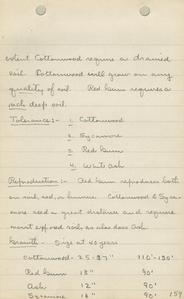 extent Cottonwood require a drained
soil. Cottonwood will grow on any
quality of soil. Red Gum requires a
rich deep soil.
Tolerance:- 1. Cottonwood
2. Sycamore
3. Red Gum
4. White Ash
Reproduction:- Red Gum reproduces both
on soil, sod, or humus. Cottonwood & Syca-
more seed a great distance and require
moist exposed soil, as also does Ash.
Growth - Size at 40 years
Cottonwood - 25.97" 110'-130'
Red Gum 18" 90'
Ash 12" 90'
Sycamore 18" 90'
159